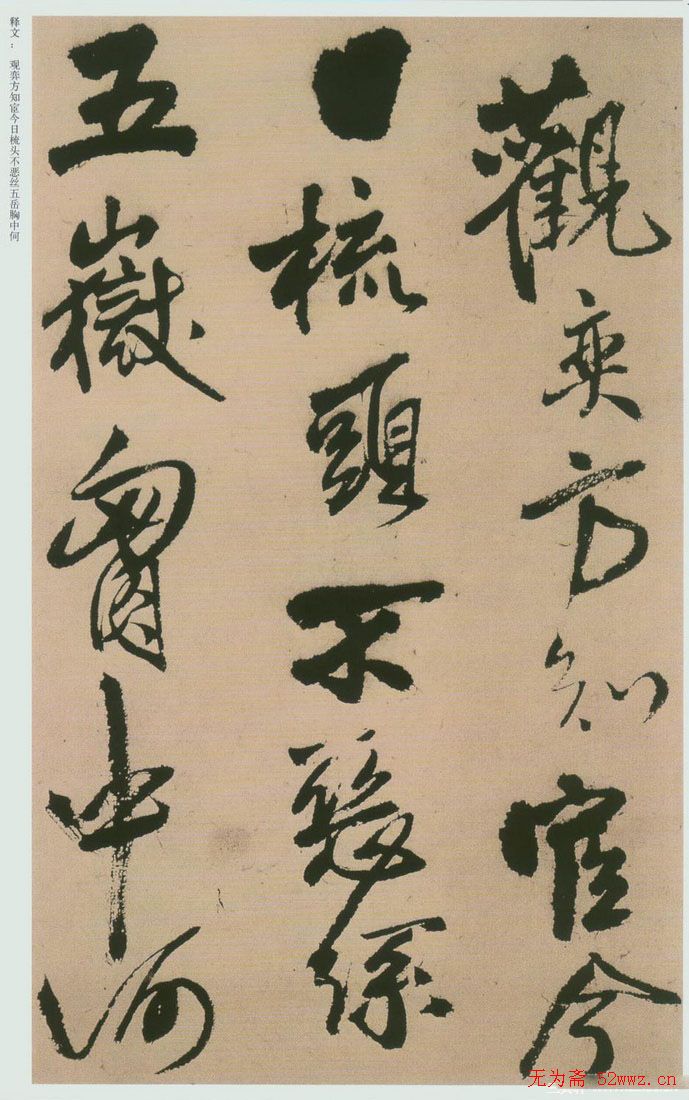 释文： 观弈方知宦今日梳头不恶丝五岳胸中何
觀奕方知宦今
日梳頭不
五嶽胷中何
无为斋 52wwz.cn